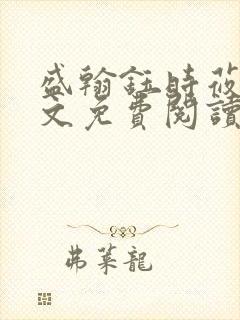 盛翰鈺時莜
文免費閱讀
弗萊龍